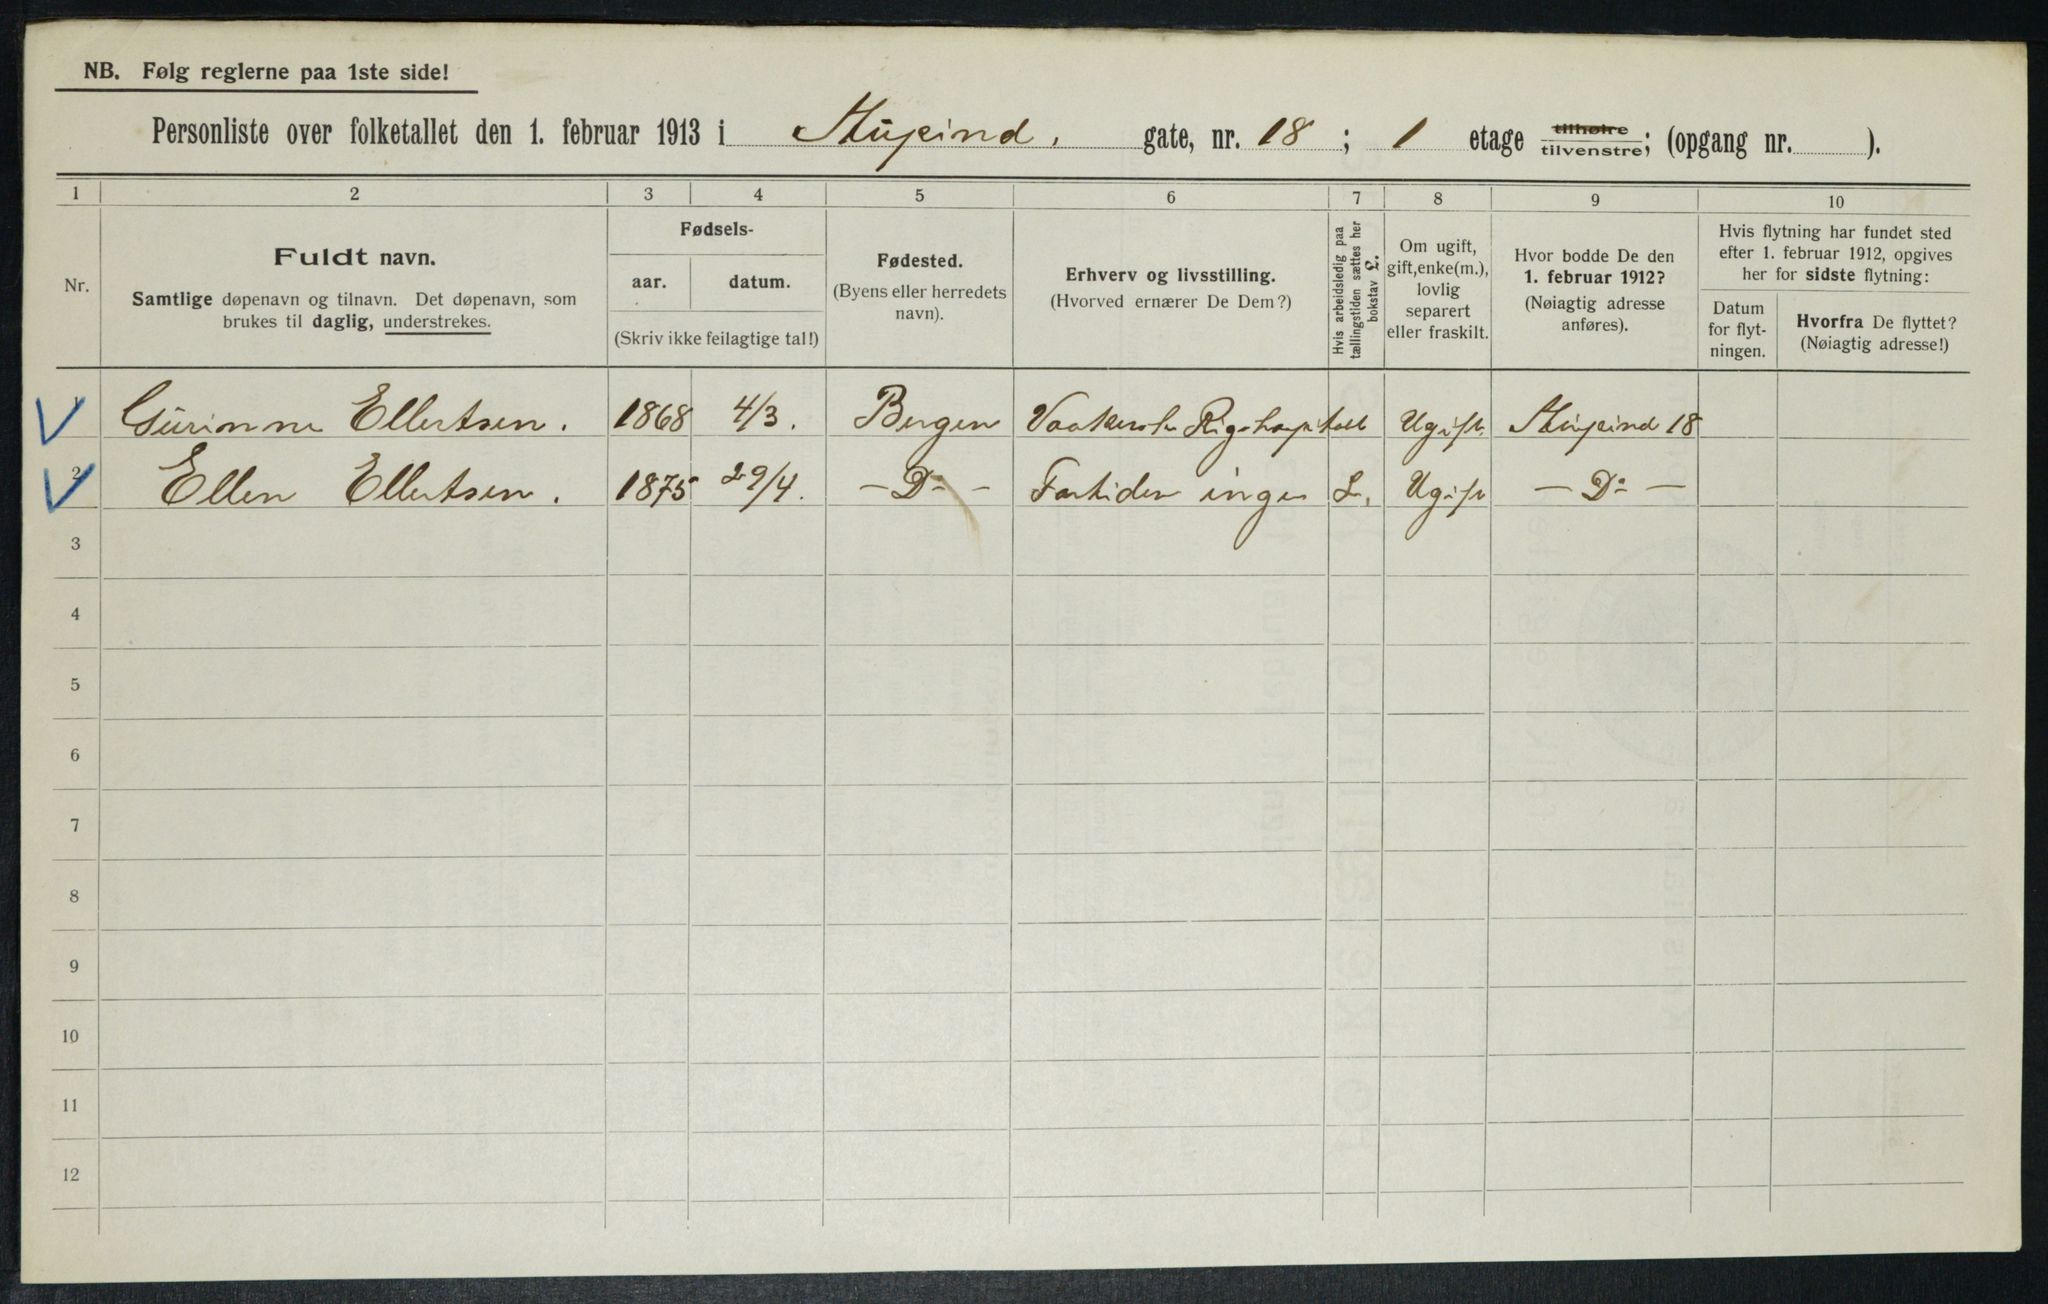 NB. Følg reglerne paa 1ste side!
Personliste over folketallet den 1. februar 1913 i Stupind. gate, nr. 18 ; 1 etage tilhøire tilvenstre; (opgang nr. ).
1 2 3 4 5 6 7 8 9 10
Nr.
Fuldt navn.
Samtlige døpenavn og tilnavn. Det døpenavn, som
brukes til daglig, understrekes.
Fødsels-
aar. datum.
(Skriv ikke feilagtige tal!)
Fødested.
(Byens eller herredets
navn).
Erhverv og livsstilling.
(Hvorved ernærer De Dem?)
Hvis arbeidsledig paa
tællingstiden sættes her
bokstav £.
Om ugift,
gift, enke(m.),
lovlig
separert
eller fraskilt.
Hvor bodde De den
1. februar 1912?
(Nøiagtig adresse
anføres).
Hvis flytning har fundet sted
efter 1. februar 1912, opgives
her for sidste flytning:
Datum
for flyt-
ningen.
Hvorfra De flyttet?
(Nøiagtig adresse!)
1 Gurinne Ellertsen. 1868 4/3. Bergen Rigshospitalet Ugift. 18
2 Ellen Ellertsen. 1875 29/4. — Do — Fortiden ingen L. Ugift — Do —
3
4
5
6
7
8
9
10
11
12